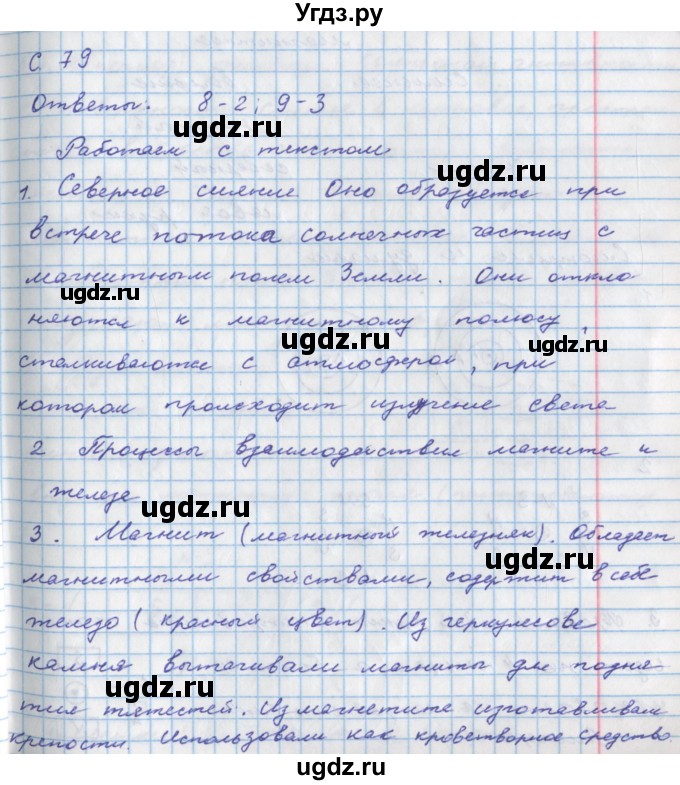 Угдз.ру
с 79
Ответы. 8-2; 9-3
ugdz.ru ugdz.ru
Работаем с текстом
1. Северное сияние Оно образуется при
ugdz.ru ugdz.ru
встрече потока солнечных частиц с
магнитным полем Земли. Они откло
ugdz.ru
няются к магнитному полюсу,
ugdz.ru
сталкиваются с атмосферой, при
котором происходит излучение света
2 Процессы взаимодействия магнита и
железа
ugdz.ru ugdz.ru
3. Магнит (магнитный железняк). Обладает
ugdz.ru
магнитными свойствами, содержит в себе
железо (красный цвет). Из геркулесова
ugdz.ru
камня вытачивали магниты для подня
ugdz.ru
тия тяжестей. Из магнетита изготавливали
крепости. Использовали как кроветворное средство
ugdz.ru